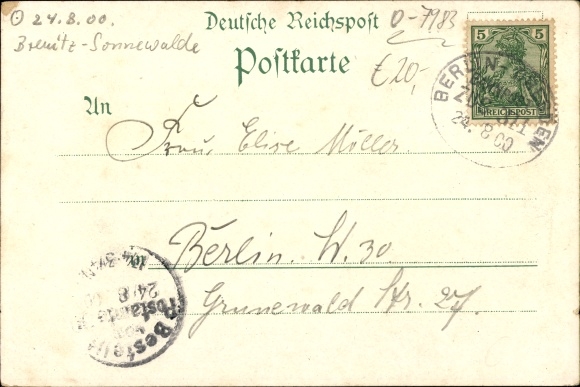 24.8.00.
Brenitz-Sonnewalde
Deutsche Reichspost
Postkarte
O-7983
€20,-
5 5
REICHSPOST
BERLIN
24. 8 00
An
Frau Elise Möller
Berlin. W. 30
Grunewald Str. 27.
24.8
Postamte
Bestellt